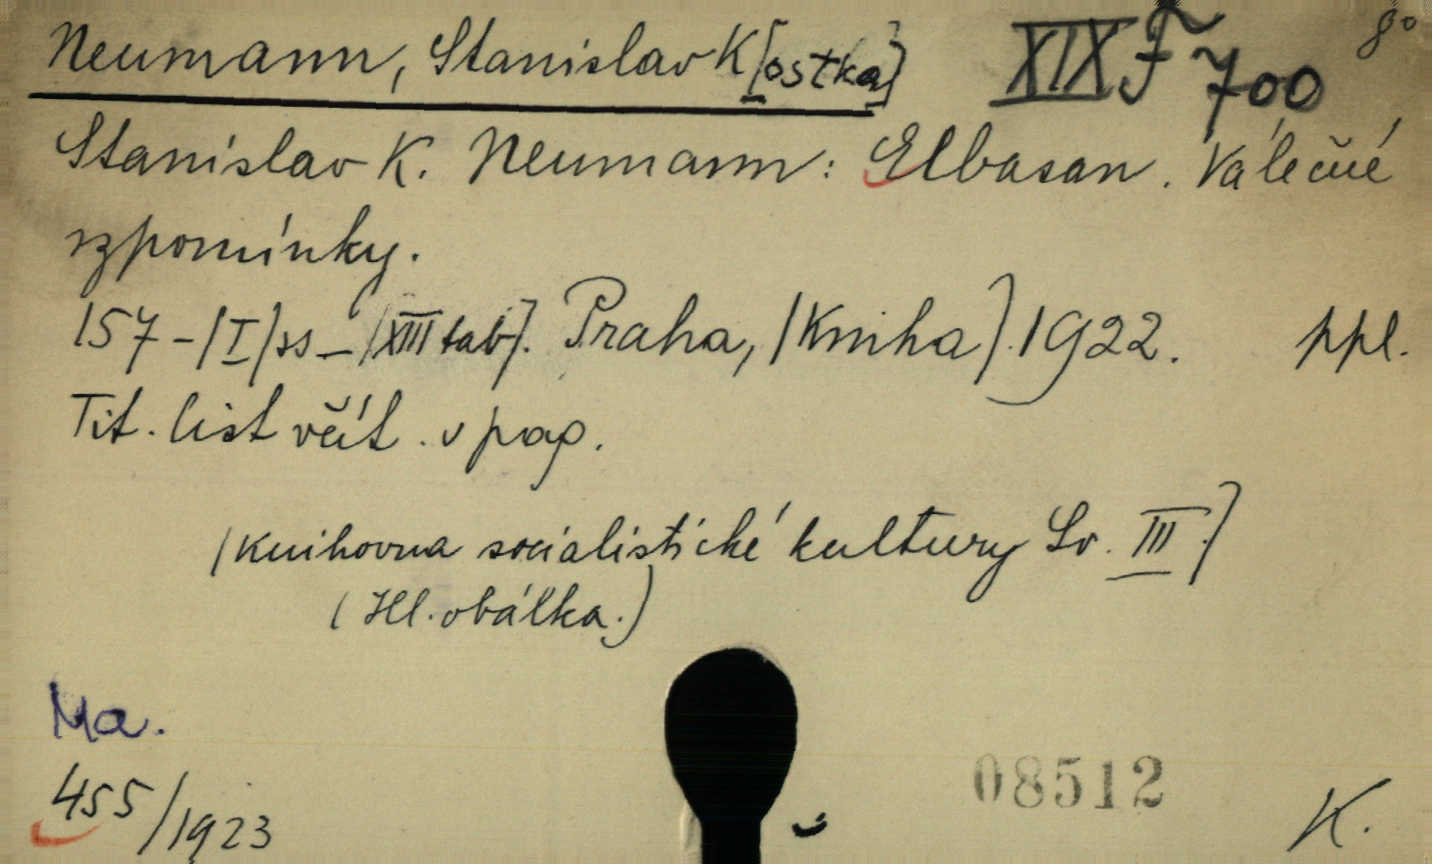 Neumann, Stanislav K[ostka] XIX F 700 8°
Stanislav K. Neumann: Elbasan. Válečné
vzpomínky.
157-/I/ss_/XIII tab/. Praha, /Kniha). 1922. ppl.
Tit. list včít. v pag.
/Knihovna socialistické kultury Sv. III./
(Hl. obálka.)
Ma.
455/1923
08512
K.